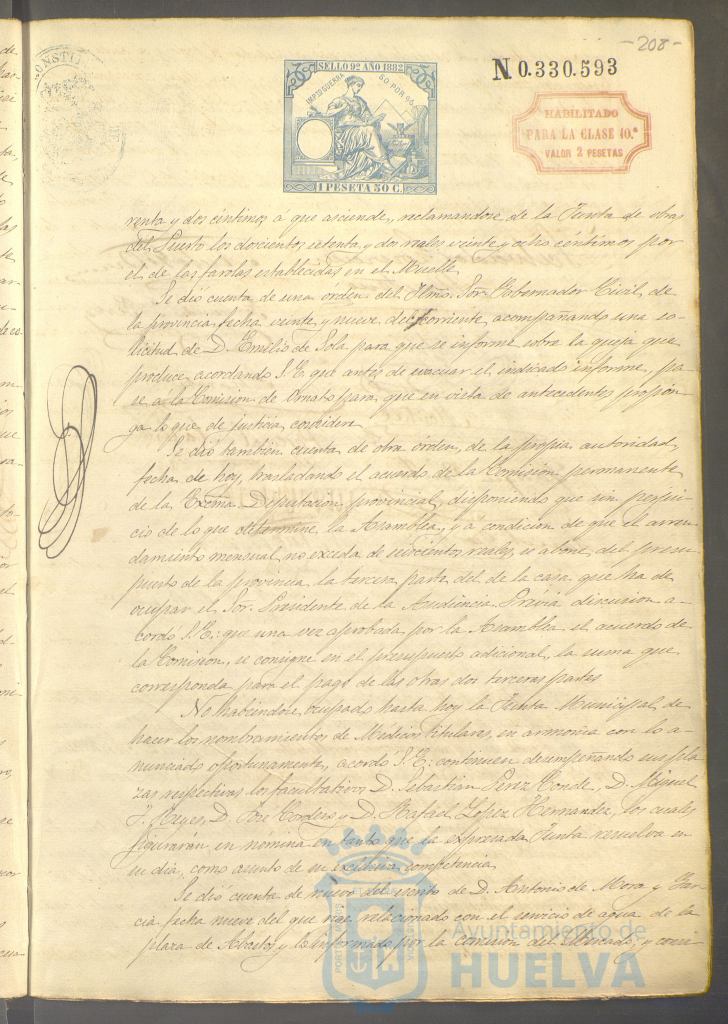 -208-
CONSTIT
SELLO 9º AÑO 1882
IMP. DIGUERRA 80 POR %
1 PESETA 50 C.
N 0.330.593
HABILITADO
PARA LA CLASE 10.ª
VALOR 2 PESETAS
renta y dos céntimos, a que asciende, reclamandose de la Junta de obras
del Puerto los doscientos setenta y dos reales veinte y ocho céntimos por
el de las farolas establecidas en el Muelle.
Se dió cuenta de una órden del Ilmo. Sor. Gobernador Civil de
la provincia, fecha veinte y nueve del corriente, acompañando una so-
licitud de D. Emilio de Sola para que se informe sobre la queja que
produce, acordando S.E. que antes de evacuar el indicado informe, pa-
se a la Comision de Ornato para que en vista de antecedentes propon-
ga lo que de justicia considere.
Se dió tambien cuenta de otra órden de la propia autoridad,
fecha de hoy, trasladando el acuerdo de la Comision permanente
de la Exma. Diputacion provincial, disponiendo que sin perjui-
cio de lo que determine la Asamblea, y a condicion de que el arren-
damiento mensual no exceda de seiscientos reales, se abone del presu-
puesto de la provincia, la tercera parte del de la casa que ha de
ocupar el Sor. Presidente de la Audiencia. Prévia discusion a-
cordó S.E.: que una vez aprobada por la Asamblea el acuerdo de
la Comision, se consigne en el presupuesto adicional, la suma que
corresponda para el pago de las otras dos terceras partes
No habiéndose ocupado hasta hoy la Junta Municipal de
hacer los nombramientos de Médicos titulares, en armonia con lo a-
nunciado oportunamente, acordó S.E.: continuen desempeñando sus pla-
zas respectivas los facultativos D. Sebastian Perez Conde, D. Miguel
J. Reyes, D. José Cordero y D. Rafael López Hernandez, los cuales
figurarán en nómina en tanto que la expresada Junta resuelva en
su dia, como asunto de su exclusiva competencia.
Se dió cuenta de nuevo del escrito de D. Antonio de Mora y Gar-
cia fecha nueve del que rige relacionado con el servicio de agua de la
plaza de Abastos y lo informado por la comision del Mercado, y consi-
Ayuntamiento de
HUELVA